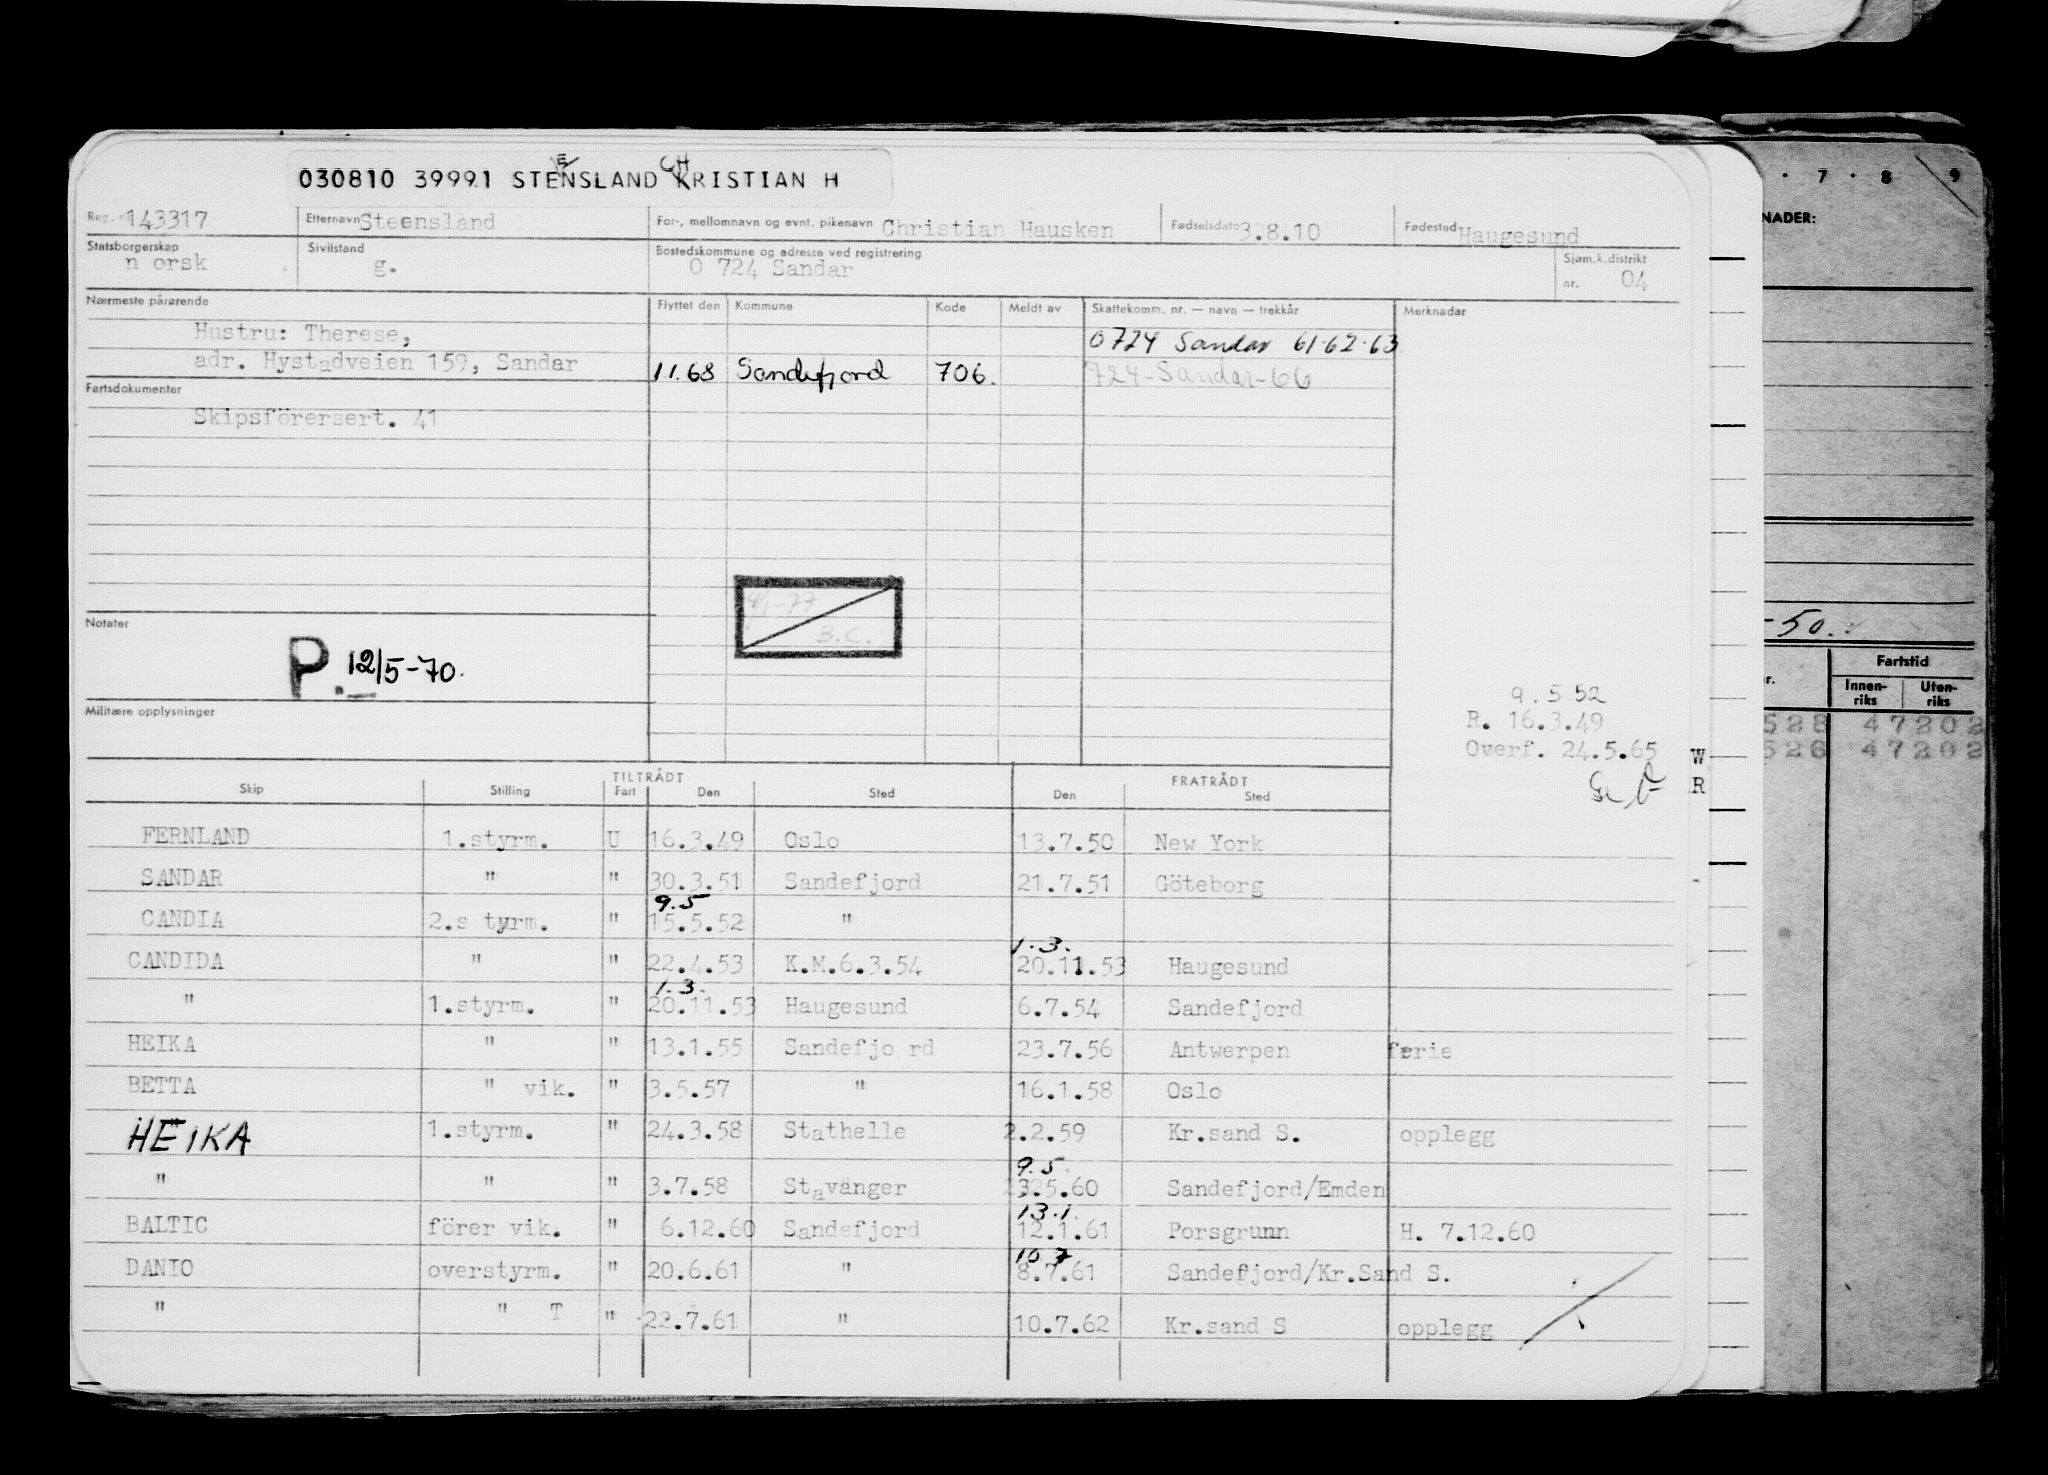 E CH
030810 39991 STENSLAND KRISTIAN H
Reg. nr. 143317 Etternavn Steensland For-, mellomnavn og evnt. pikenavn Christian Hausken Fødselsdato 3.8.10 Fødested Haugesund
Statsborgerskap n orsk Sivilstand g. Bostedskommune og adresse ved registrering O 724 Sandar Sjøm.k.distrikt nr. 04
Nærmeste pårørende Flyttet den Kommune Kode Meldt av Skattekomm. nr. — navn — trekkår Merknader
Hustru: Therese, 0724 Sandar 61-62-63
adr. Hystadveien 159, Sandar 11.68 Sandefjord 706. 724-Sandar-66
Fartsdokumenter
Skipsförersert. 41
4/1-77
B.C.
Notater
P. 12/5-70.
Militære opplysninger
9.5 52
R. 16.3.49
Overf. 24.5.65
TILTRÅDT FRATRÅDT
Skip Stilling Fart Den Sted Den Sted
FERNLAND 1.styrm. U 16.3.49 Oslo 13.7.50 New York
SANDAR " " 30.3.51 Sandefjord 21.7.51 Göteborg
9.5
CANDIA 2.s tyrm. " 15.5.52 "
1.3.
CANDIDA " " 22.4.53 K.M.6.3.54 20.11.53 Haugesund
1.3.
" 1.styrm. " 20.11.53 Haugesund 6.7.54 Sandefjord
HEIKA " " 13.1.55 Sandefjo rd 23.7.56 Antwerpen ferie
BETTA " vik. " 3.5.57 " 16.1.58 Oslo
HEIKA 1.styrm. " 24.3.58 Stathelle 2.2.59 Kr.sand S. opplegg
9.5.
" " " 3.7.58 Stavanger 23.5.60 Sandefjord/Emden
13.1.
BALTIC förer vik. " 6.12.60 Sandefjord 12.1.61 Porsgrunn H. 7.12.60
10.7
DANIO overstyrm. " 20.6.61 " 8.7.61 Sandefjord/Kr.Sand S.
" " T " 22.7.61 " 10.7.62 Kr.sand S opplegg
W
R
. 7 . 8 9
NADER:
-50.
Fartstid
r. Innen-riks Uten-riks
528 47202
526 47202